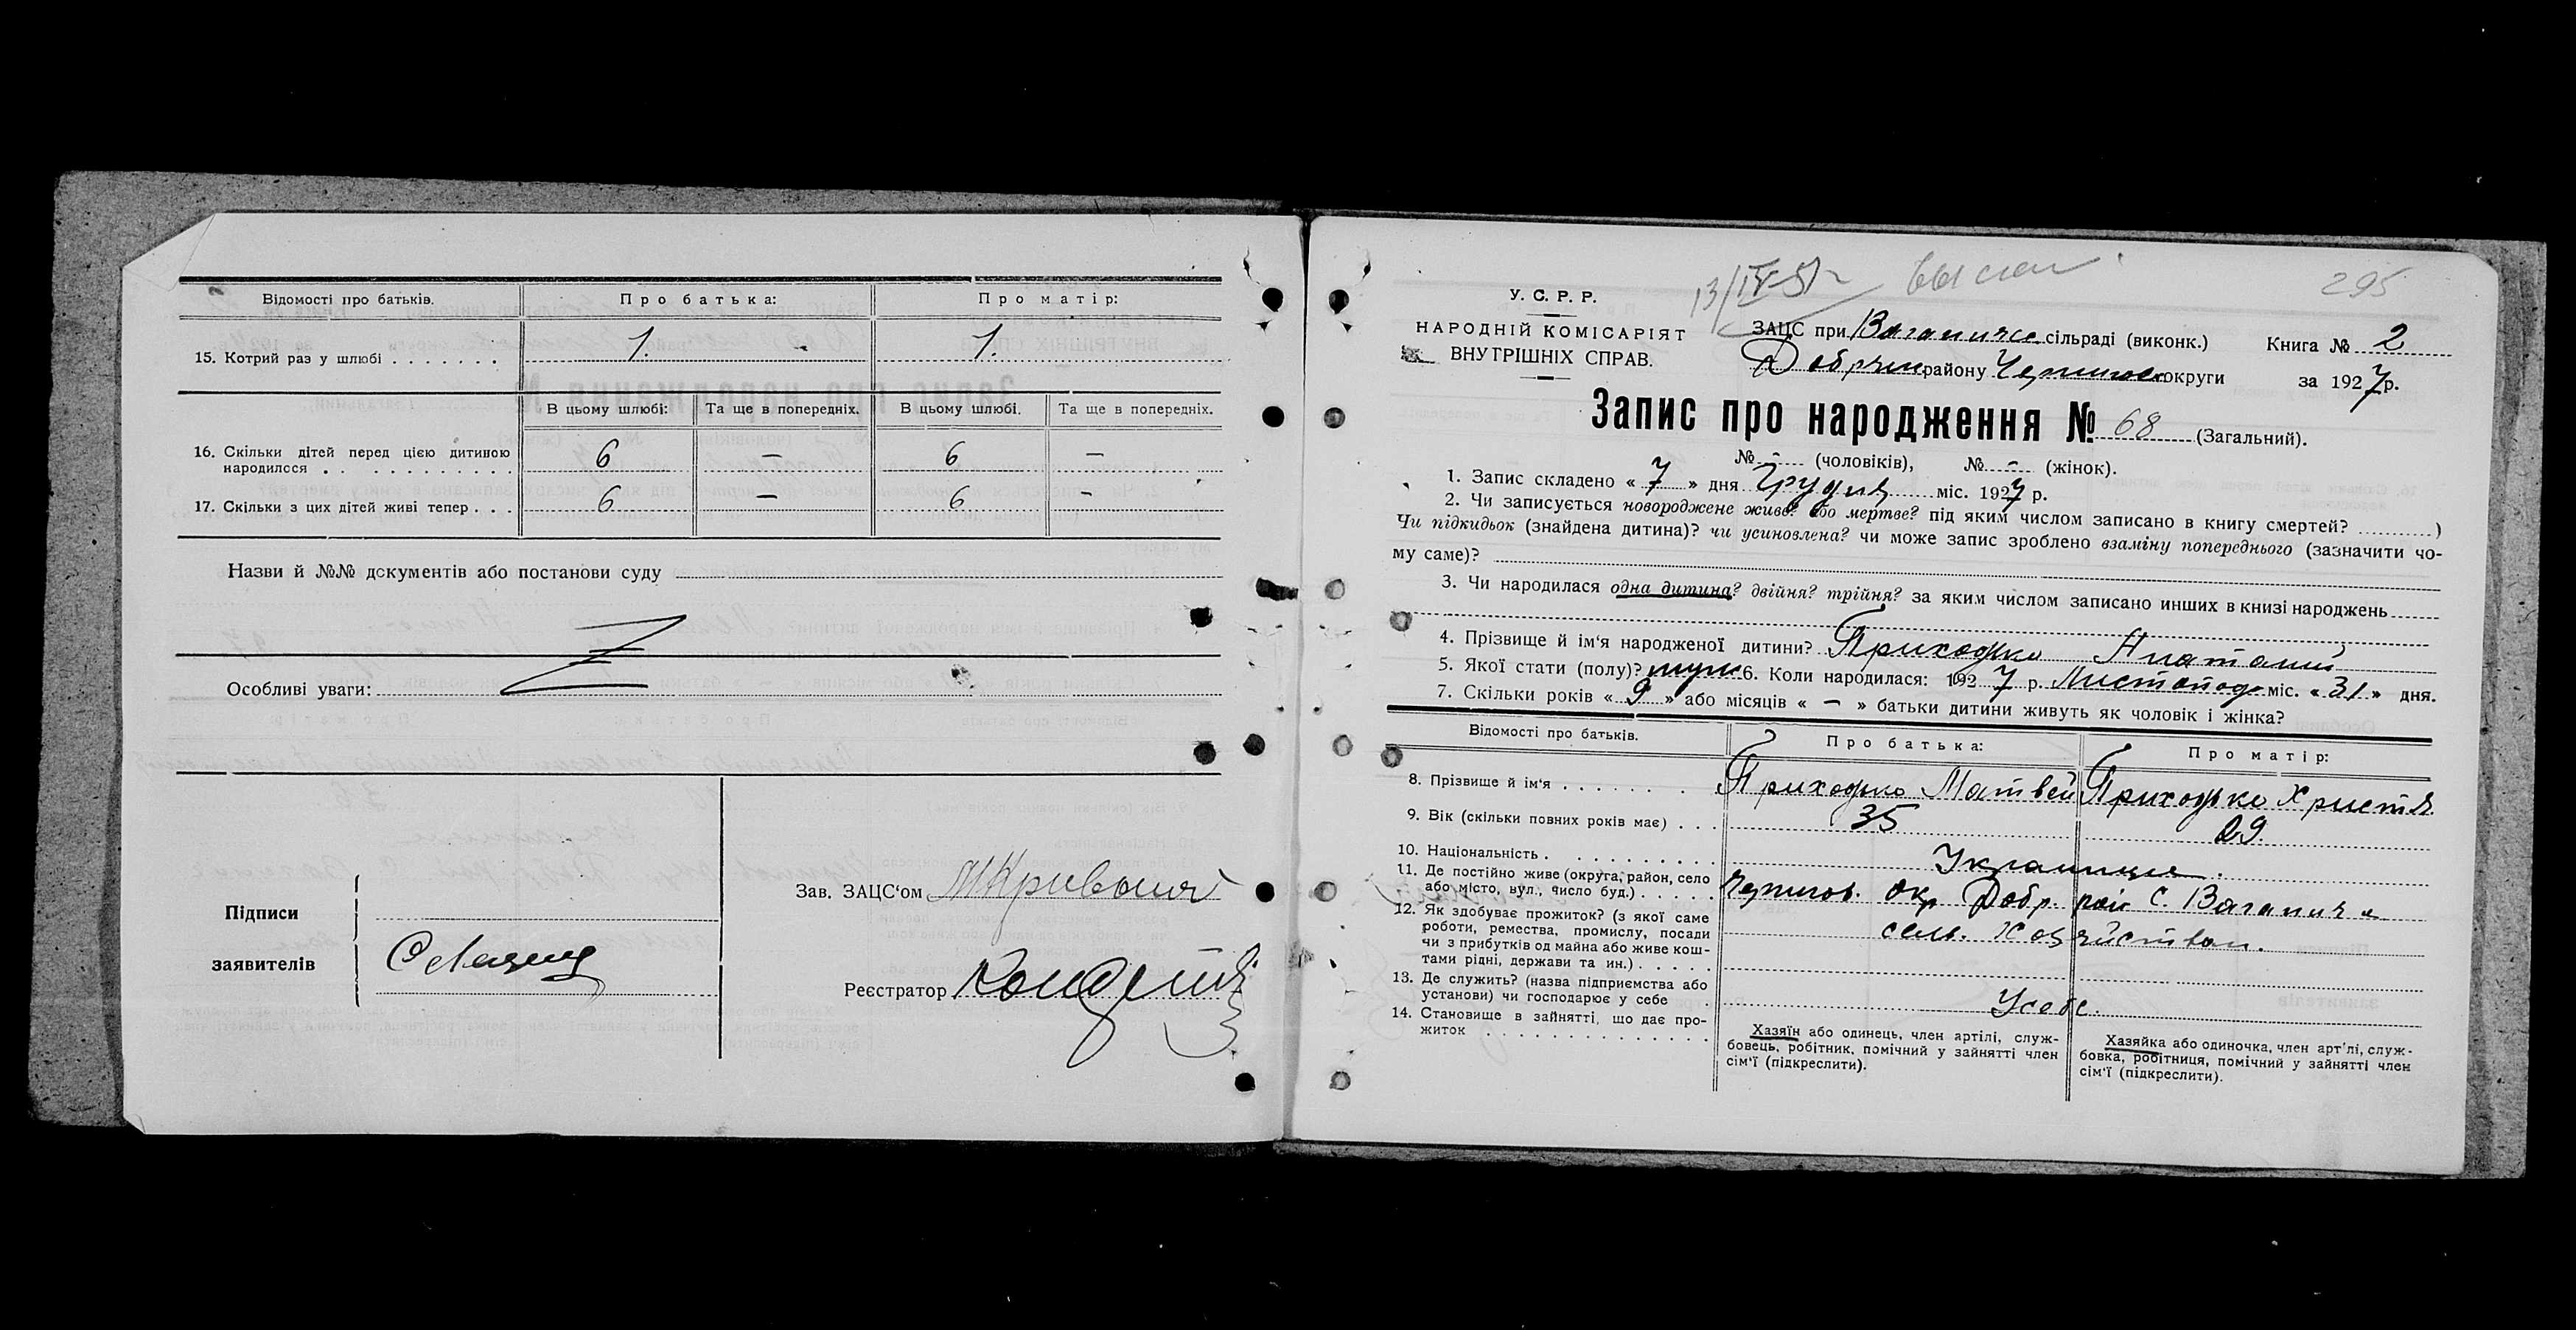 Відомості про батьків. Про батька: Про матір:
15. Котрий раз у шлюбі . . . . . . . 1. 1.
В цьому шлюбі: Та ще в попередніх. В цьому шлюбі. Та ще в попередніх.
16. Скільки дітей перед цією дитиною
народилося . . . . . . . . . . . 6 — 6 —
17. Скільки з цих дітей живі тепер . . . 6 — 6 —
Назви й №№ документів або постанови суду
Особливі уваги:
Підписи
заявителів
Зав. ЗАЦС'ом
Реєстратор
295
13/IV-51г
У. С. Р. Р.
НАРОДНІЙ КОМІСАРІЯТ
ВНУТРІШНІХ СПРАВ.
ЗАЦС при сільраді (виконк.) Книга № 2
району округи за 1927р.
Запис про народження № 68 (Загальний).
№ - (чоловіків), № - (жінок).
1. Запис складено « 7 » дня Грудня міс. 1927 р.
2. Чи записується новороджене живе? або мертве? під яким числом записано в книгу смертей? )
Чи підкидьок (знайдена дитина)? чи усиновлена? чи може запис зроблено взаміну попереднього (зазначити чо-
му саме)?
3. Чи народилася одна дитина? двійня? трійня? за яким числом записано инших в книзі народжень
4. Прізвище й ім'я народженої дитини? Приходько Анатолий
5. Якої стати (полу)? муж 6. Коли народилася: 1927 р. Листопод міс. « 31 » дня.
7. Скільки років « 9 » або місяців « — » батьки дитини живуть як чоловік і жінка?
Відомості про батьків. Про батька: Про матір:
8. Прізвище й ім'я . . . . . . . . Приходько Матвей Приходько Христя
9. Вік (скільки повних років має) . . . 35 29.
10. Національність . . . . . . . . . .
11. Де постійно живе (округа, район, село
або місто, вул., число буд.) . . . . . Чернигов. окр Добр. рай с.
12. Як здобуває прожиток? (з якої саме
роботи, ремества, промислу, посади
чи з прибутків од майна або живе кош-
тами рідні, держави та ин.) . . . . . сель.
13. Де служить? (назва підприємства або
установи) чи господарює у себе . У себе.
14. Становище в зайнятті, що дає про-
житок . . . . . . . . . . . . . .
Хазяїн або одинець, член артілі, служ-
бовець, робітник, помічний у зайнятті член
сім'ї (підкреслити).
Хазяйка або одиночка, член арт'лі, служ-
бовка, робітниця, помічний у зайнятті член
сім'ї (підкреслити).